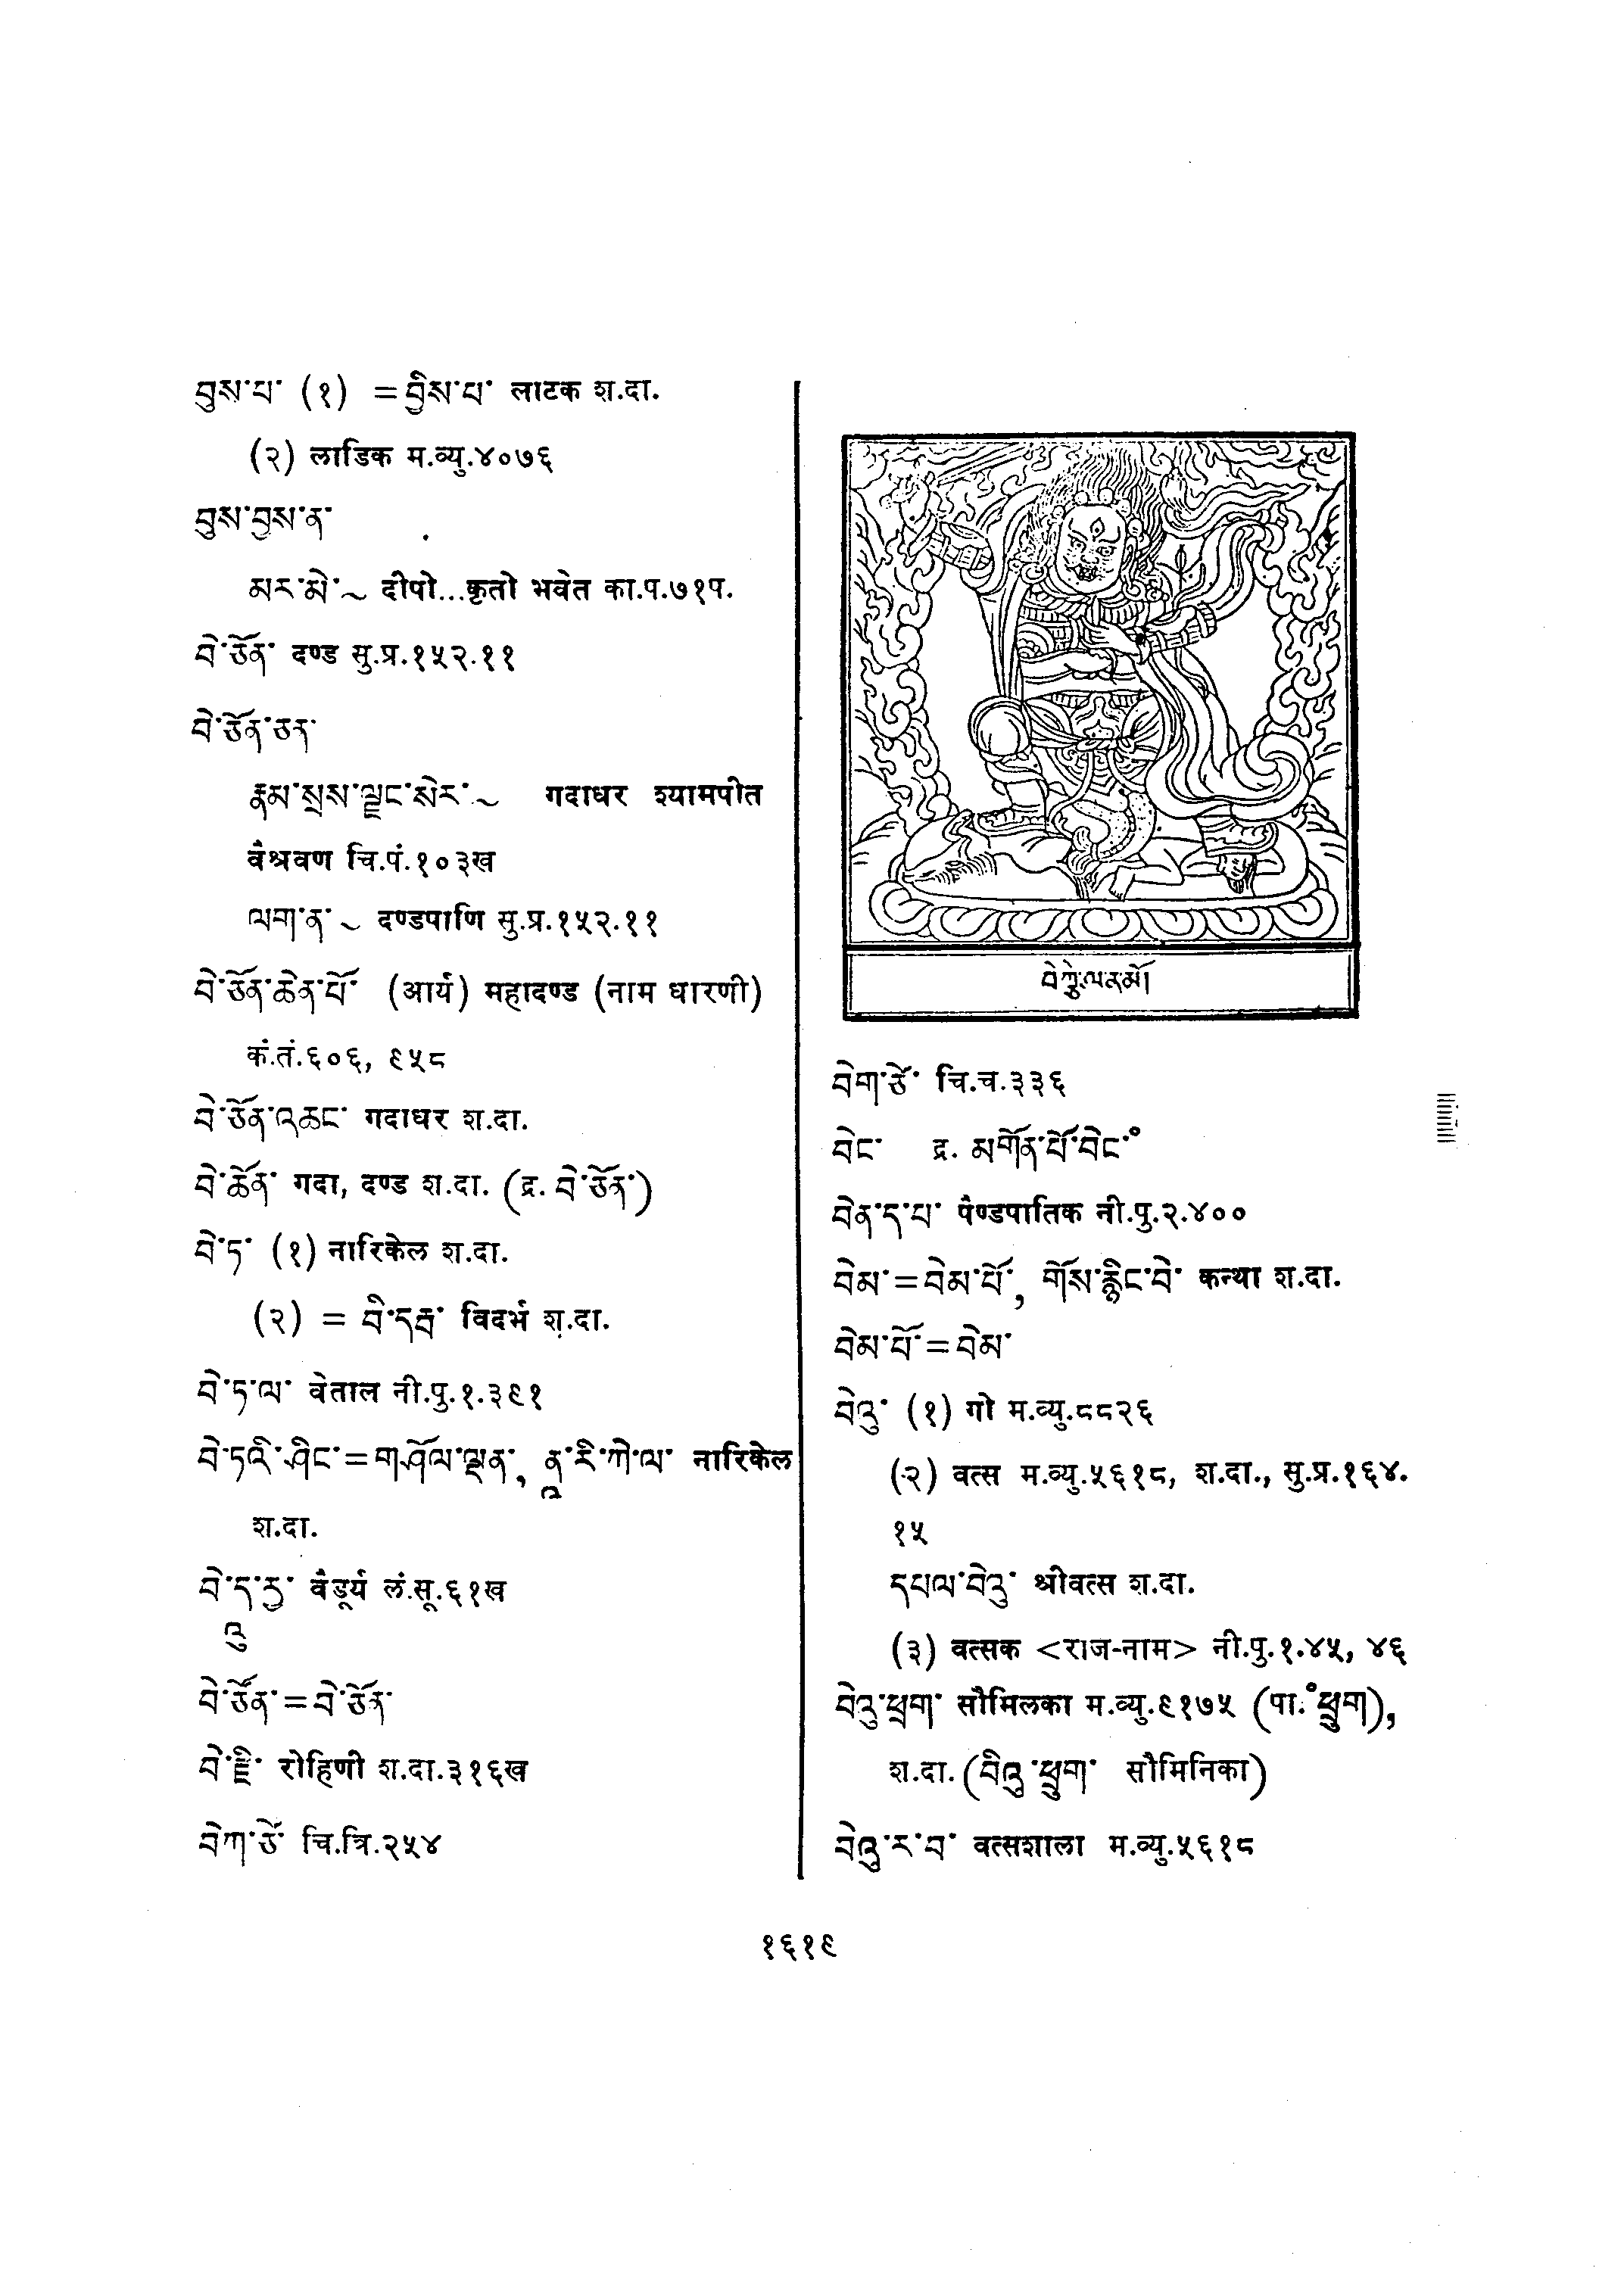 བུས་པ་ (१) =བྱིས་པ་ लाटक श.दा.
(२) लाडिक म.व्यु.४०७६
བུས་བྱས་ན་
མར་མེ་~ दीपो...कृतो भवेत का.प.७१प.
བེ་ཅོན་ दण्ड सु.प्र.१५२.११
བེ་ཅོན་ཅན་
རྣམ་སྲས་ལྗང་སེར་~ गदाधर श्यामपीत
वैश्रवण चि.पं.१०३ख
ལག་ན་~ दण्डपाणि सु.प्र.१५२.११
བེ་ཅོན་ཆེན་པོ་ (आर्य) महादण्ड (नाम धारणी)
कं.तं.६०६, ९५८
བེ་ཅོན་འཆང་ गदाधर श.दा.
བེ་ཆོན་ गदा, दण्ड श.दा. (द्र. བེ་ཅོན་)
བེ་ཏ་ (१) नारिकेल श.दा.
(२) = བི་དརྦ་ विदर्भ श.दा.
བེ་ཏ་ལ་ वेताल नी.पु.१.३९१
བེ་ཏའི་ཤིང་=གཤོལ་ལྡན་, ནཱ་རི་ཀེ་ལ་ नारिकेल
श.दा.
བེ་ད་རུ་ वैडूर्य लं.सू.६१ख
འུ
བེ་ཙོན་=བེ་ཅོན་
བེ་ཛི་ रोहिणी श.दा.३१६ख
བེཀ་ཙེ་ चि.त्रि.२५४
བེག་ཙེ་ चि.च.३३६
བེང་ द्र. མགོན་པོ་བེང་°
བེན་ད་པ་ पैण्डपातिक नी.पु.२.४००
བེམ་=བེམ་པོ་, གོས་རྙིང་བེ་ कन्था श.दा.
བེམ་པོ་=བེམ་
བེའུ་ (१) गो म.व्यु.८८२६
(२) वत्स म.व्यु.५६१८, श.दा., सु.प्र.१६४.
१५
དཔལ་བེའུ་ श्रीवत्स श.दा.
(३) वत्सक <राज-नाम> नी.पु.१.४५, ४६
བེའུ་ཕྲག་ सौमिलका म.व्यु.९१७५ (पा.°ཕྲུག),
श.दा.(བིའུ་ཕྲུག་ सौमिनिका)
བེའུ་ར་བ་ वत्सशाला म.व्यु.५६१८
१६१९